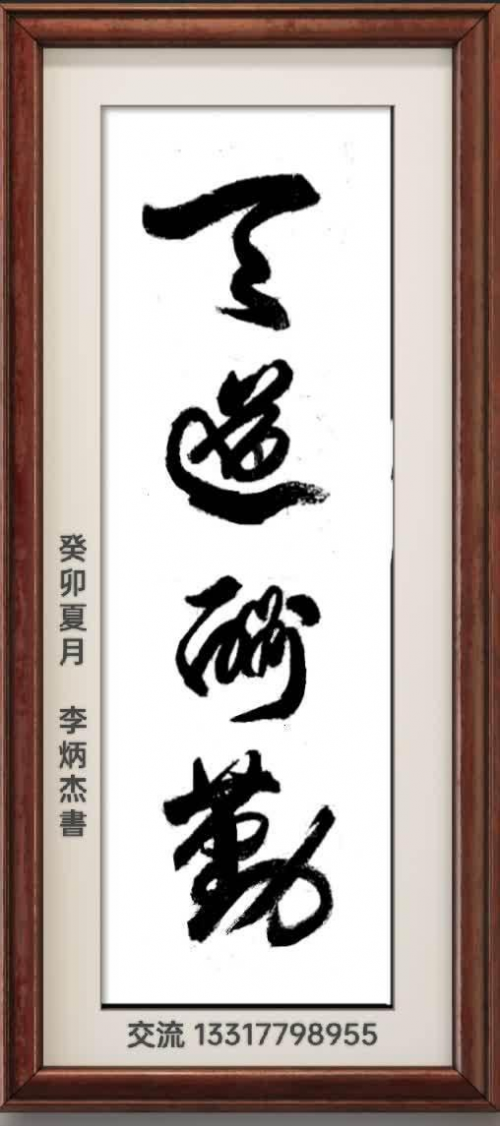 天道酬勤
癸卯夏月 李炳杰書
交流 13317798955